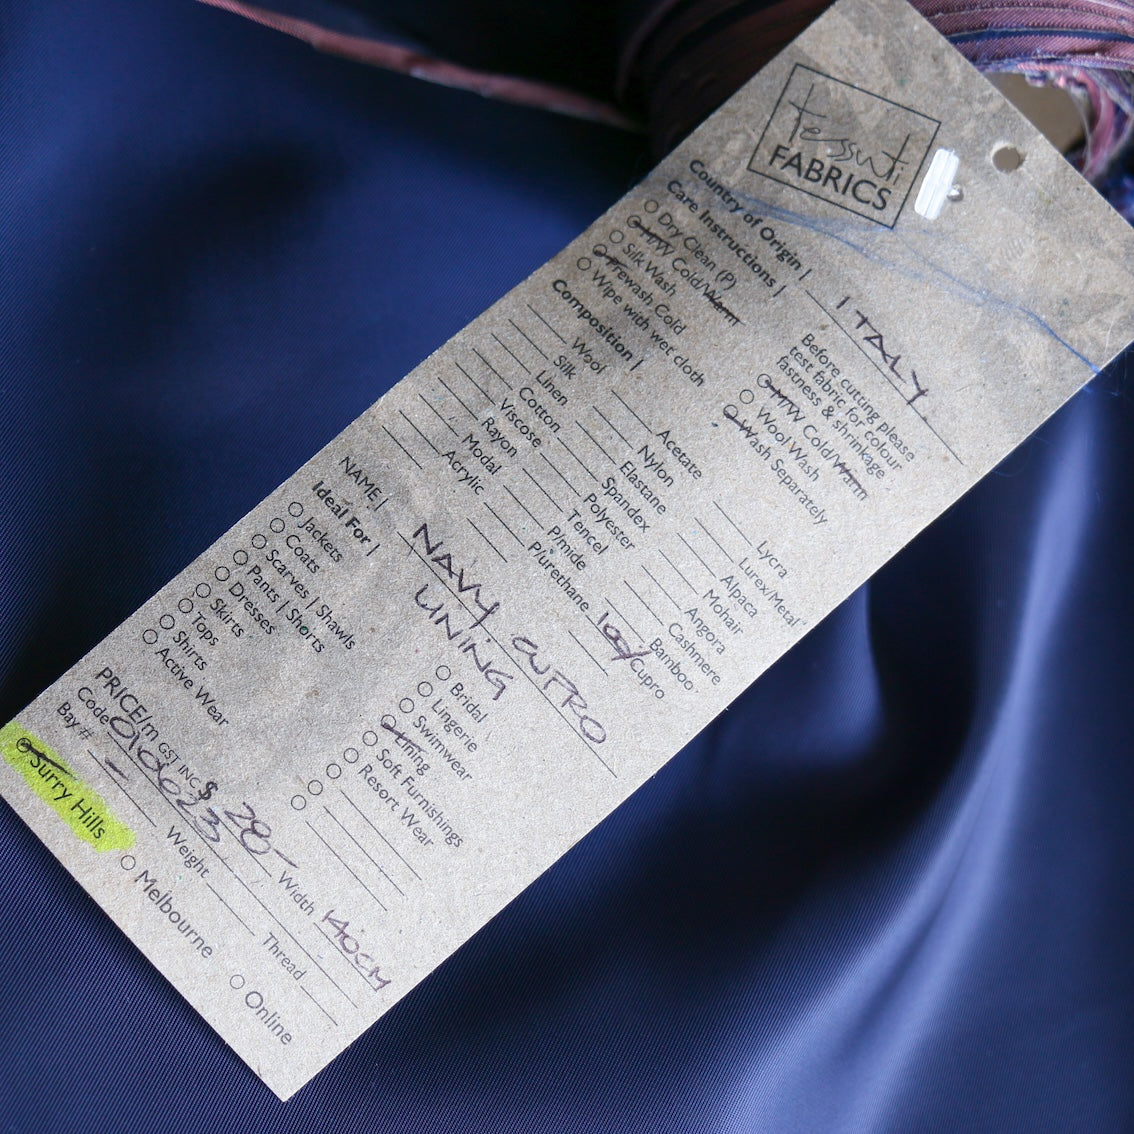 Tessuti
FABRICS
Country of Origin | ITALY
Care Instructions |
Dry Clean (P)
M/W Cold/Warm
Silk Wash
Prewash Cold
Wipe with wet cloth
Before cutting please
test fabric for colour
fastness & shrinkage
H/W Cold/Warm
Wool Wash
Wash Separately
Composition |
Wool
Silk
Linen
Cotton
Viscose
Rayon
Modal
Acrylic
Acetate
Nylon
Elastane
Spandex
Polyester
Tencel
P/mide
P/urethane
Lycra
Lurex/Metal
Alpaca
Mohair
Angora
Cashmere
Bamboo
100% Cupro
NAME | NAVY CUPRO
LINING
Ideal For |
Jackets
Coats
Scarves | Shawls
Pants | Shorts
Dresses
Skirts
Tops
Shirts
Active Wear
Bridal
Lingerie
Swimwear
Lining
Soft Furnishings
Resort Wear
PRICE/m GST INC $ 28- Width 140CM
Code 010023 Weight Thread
Bay # -
Surry Hills
Melbourne
Online